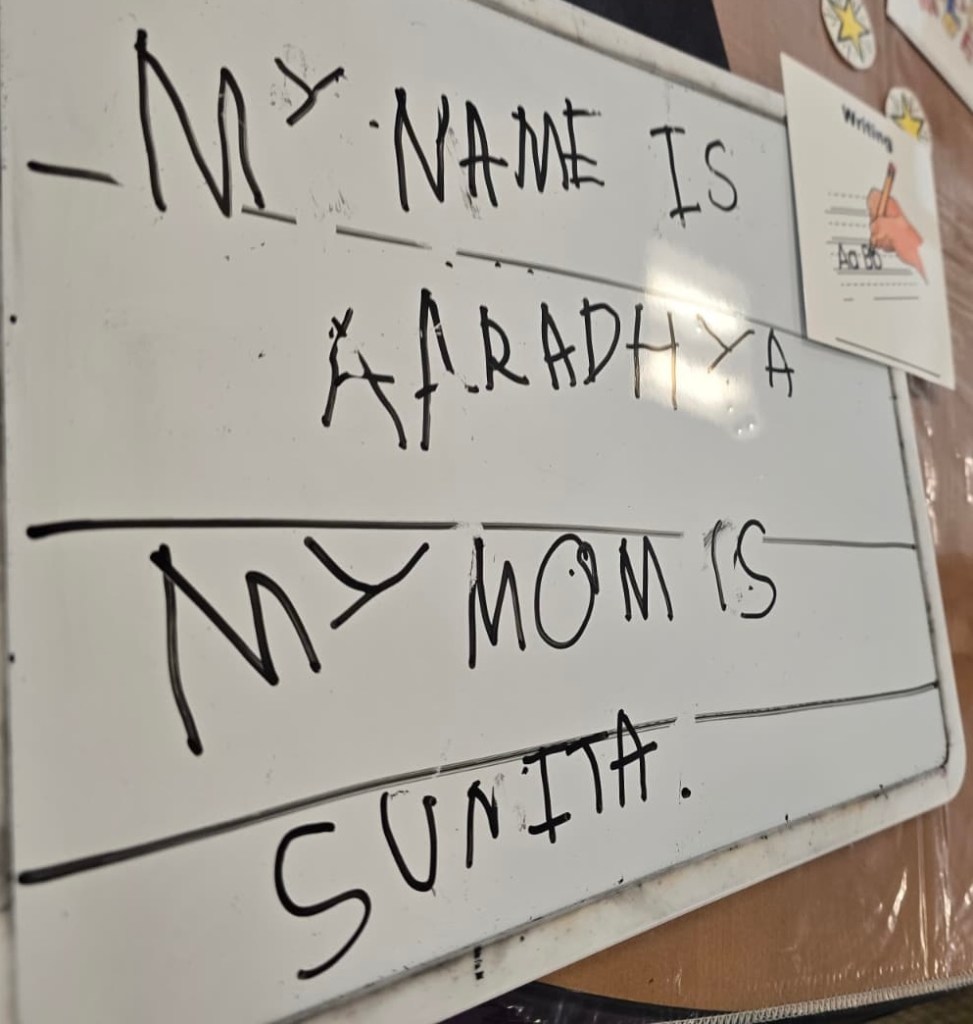 MY NAME IS
AARADHYA
MY MOM IS
SUNITA.
Writing
Aa Bb